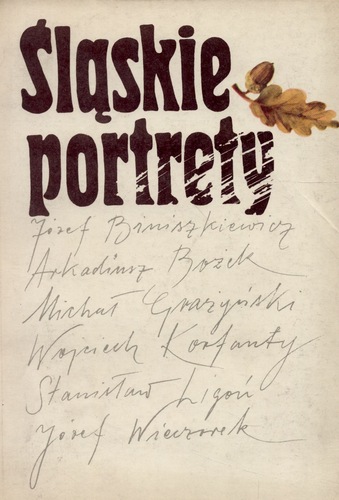 Śląskie
portrety
Józef Biniszkiewicz
Arkadiusz Bożek
Michał Grażyński
Wojciech Korfanty
Stanisław Ligoń
Józef Wieczorek